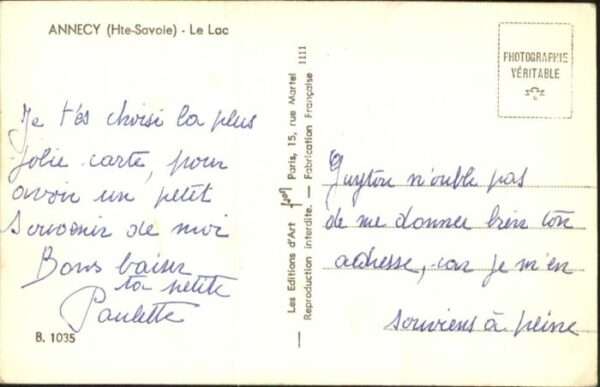 ANNECY (Hte-Savoie) - Le Lac
Je t'ai choisi la plus
jolie carte, pour
avoir un petit
souvenir de moi
Bons baisers
ta petite
Paulette
B. 1035
Les Editions d'Art Yvon Paris, 15, rue Martel 1111
Reproduction interdite. — Fabrication Française
PHOTOGRAPHIE
VÉRITABLE
Guyton n'oublie pas
de me donner bien ton
adresse, car je m'en
souviens à peine